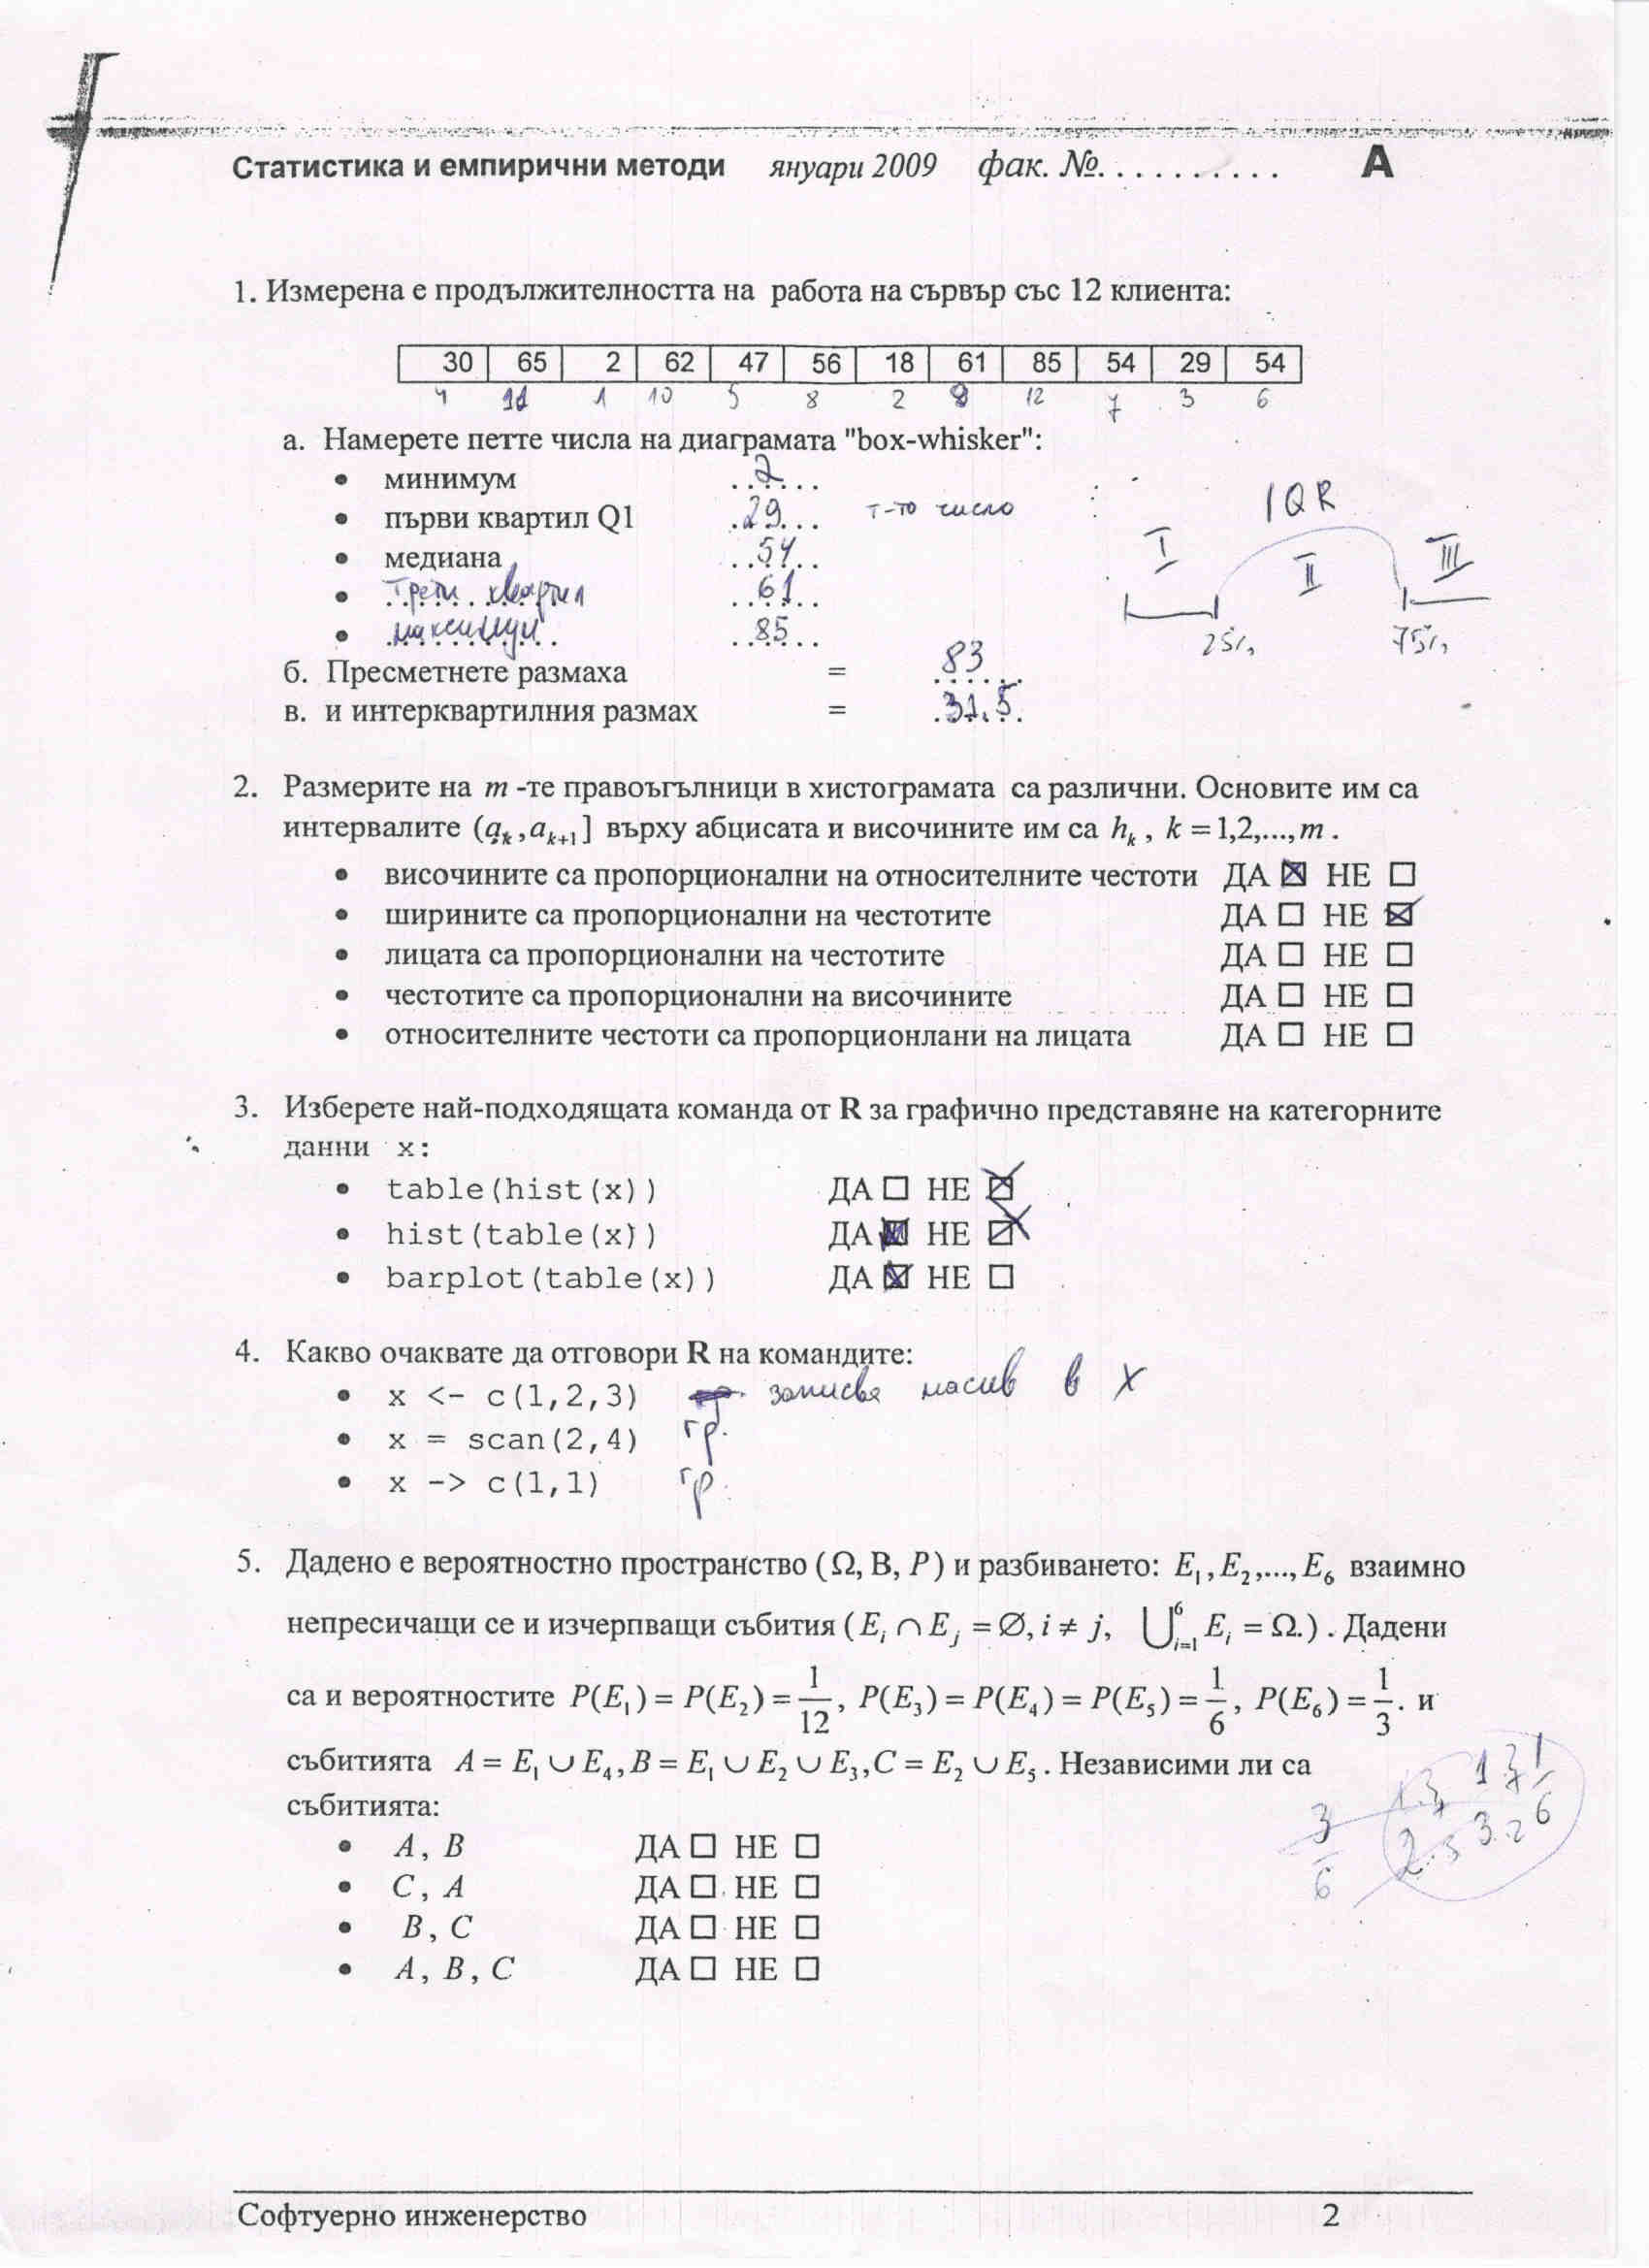 Статистика и емпирични методи януари 2009 фак. №........... А
1. Измерена е продължителността на работа на сървър със 12 клиента:
30 65 2 62 47 56 18 61 85 54 29 54
4 11 1 10 5 8 2 9 12 7 3 6
а. Намерете петте числа на диаграмата "box-whisker":
• минимум 2
• първи квартил Q1 29 т-то число
• медиана 54
• трети квартил 61
• максимум 85
IQR
I II III
25% 75%
б. Пресметнете размаха = 83
в. и интерквартилния размах = 31.5
2. Размерите на m -те правоъгълници в хистограмата са различни. Основите им са
интервалите (a_k, a_{k+1}] върху абцисата и височините им са h_k, k = 1,2,...,m.
• височините са пропорционални на относителните честоти ДА ☒ НЕ ☐
• ширините са пропорционални на честотите ДА ☐ НЕ ☒
• лицата са пропорционални на честотите ДА ☐ НЕ ☐
• честотите са пропорционални на височините ДА ☐ НЕ ☐
• относителните честоти са пропорционлани на лицата ДА ☐ НЕ ☐
3. Изберете най-подходящата команда от R за графично представяне на категорните
данни x:
• table(hist(x)) ДА ☐ НЕ ☒
• hist(table(x)) ДА ☒ НЕ ☒
• barplot(table(x)) ДА ☒ НЕ ☐
4. Какво очаквате да отговори R на командите:
• x <- c(1,2,3) записва масив в x
• x = scan(2,4) гр.
• x -> c(1,1) гр.
5. Дадено е вероятностно пространство (Ω, B, P) и разбиването: E₁, E₂,..., E₆ взаимно
непресичащи се и изчерпващи събития (E_i ∩ E_j = ∅, i ≠ j, ⋃_{i=1}^{6} E_i = Ω.). Дадени
са и вероятностите P(E₁) = P(E₂) = 1/12, P(E₃) = P(E₄) = P(E₅) = 1/6, P(E₆) = 1/3. и
събитията A = E₁ ∪ E₄, B = E₁ ∪ E₂ ∪ E₃, C = E₂ ∪ E₅. Независими ли са
събитията:
• A, B ДА ☐ НЕ ☐
• C, A ДА ☐ НЕ ☐
• B, C ДА ☐ НЕ ☐
• A, B, C ДА ☐ НЕ ☐
3/6
Софтуерно инженерство 2